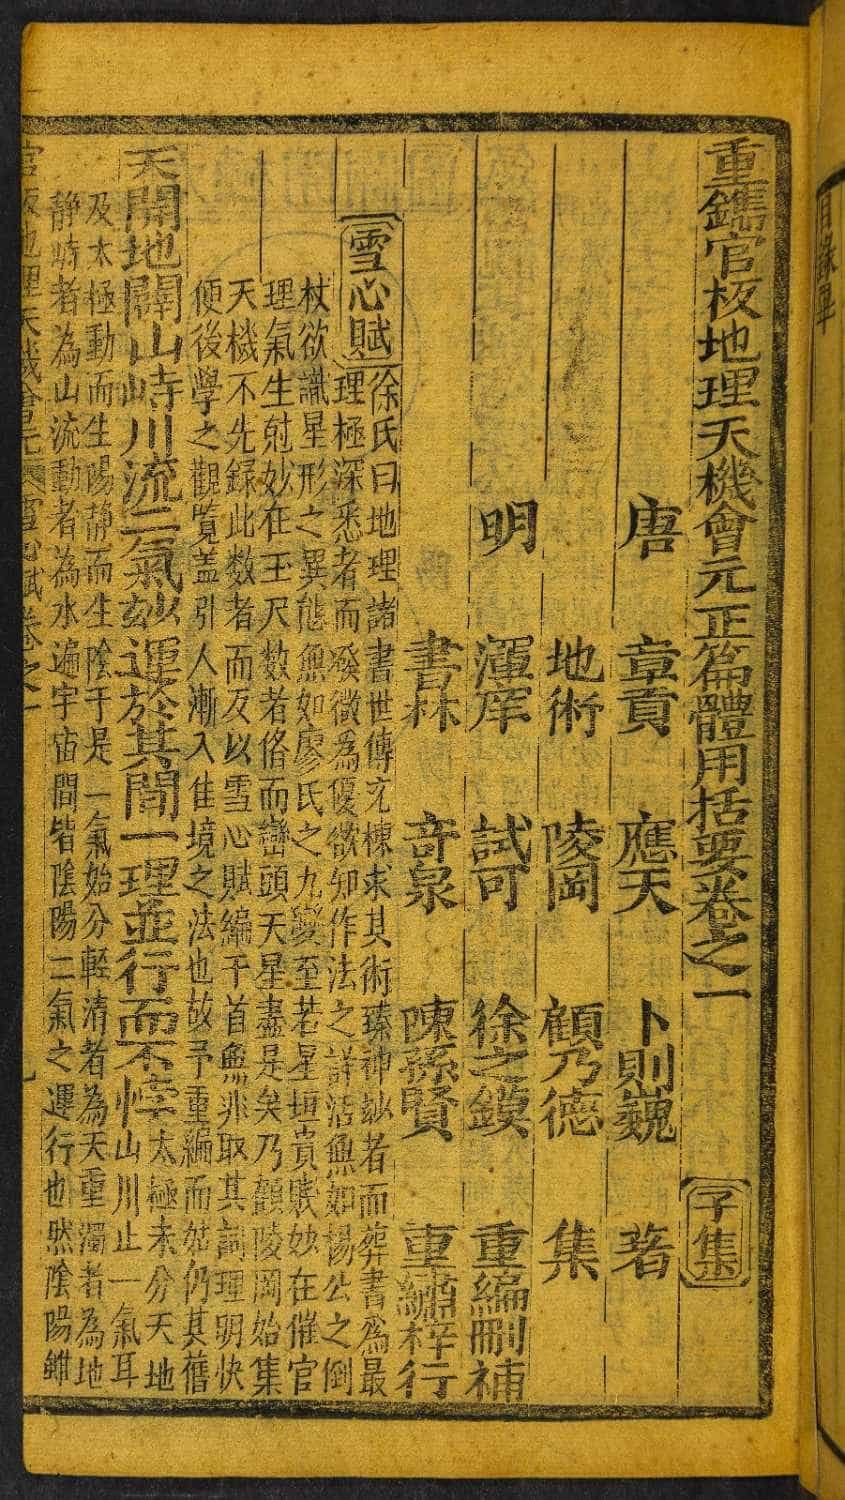 重鐫官板地理天機會元正篇體用括要卷之一
子集
唐 章貢 應天 卜則巍 著
地術 陵岡 顧乃德 集
明 渾庠 試可 徐之鏌 重編刪補
書林 竒泉 陳孫賢 重繡梓行
雪心賦 徐氏曰地理諸書世傳充棟求其術臻神玅者而葬書爲最
理極深悉者而發微爲優欲知作法之詳活無如楊公之倒
杖欲識星形之異態無如廖氏之九變至若星垣貴賤妙在催官
理氣生尅妙在玉尺数者俻而巒頭天星盡是矣乃顧陵岡始集
天機不先録此数者而反以雪心賦編于首無非取其詞理明快
便後學之觀覧盖引人漸入佳境之法也故予重編而姑仍其舊
天開地闢山峙川流二氣玅運於其間一理並行而不悖 山川止一氣耳
太極未分天地
及太極動而生陽静而生陰于是一氣始分輕清者為天重濁者為地
静峙者為山流動者為水遍宇宙間皆陰陽二氣之運行也然陰陽雖
官板地理天機會元 雪心賦卷之一
目錄畢